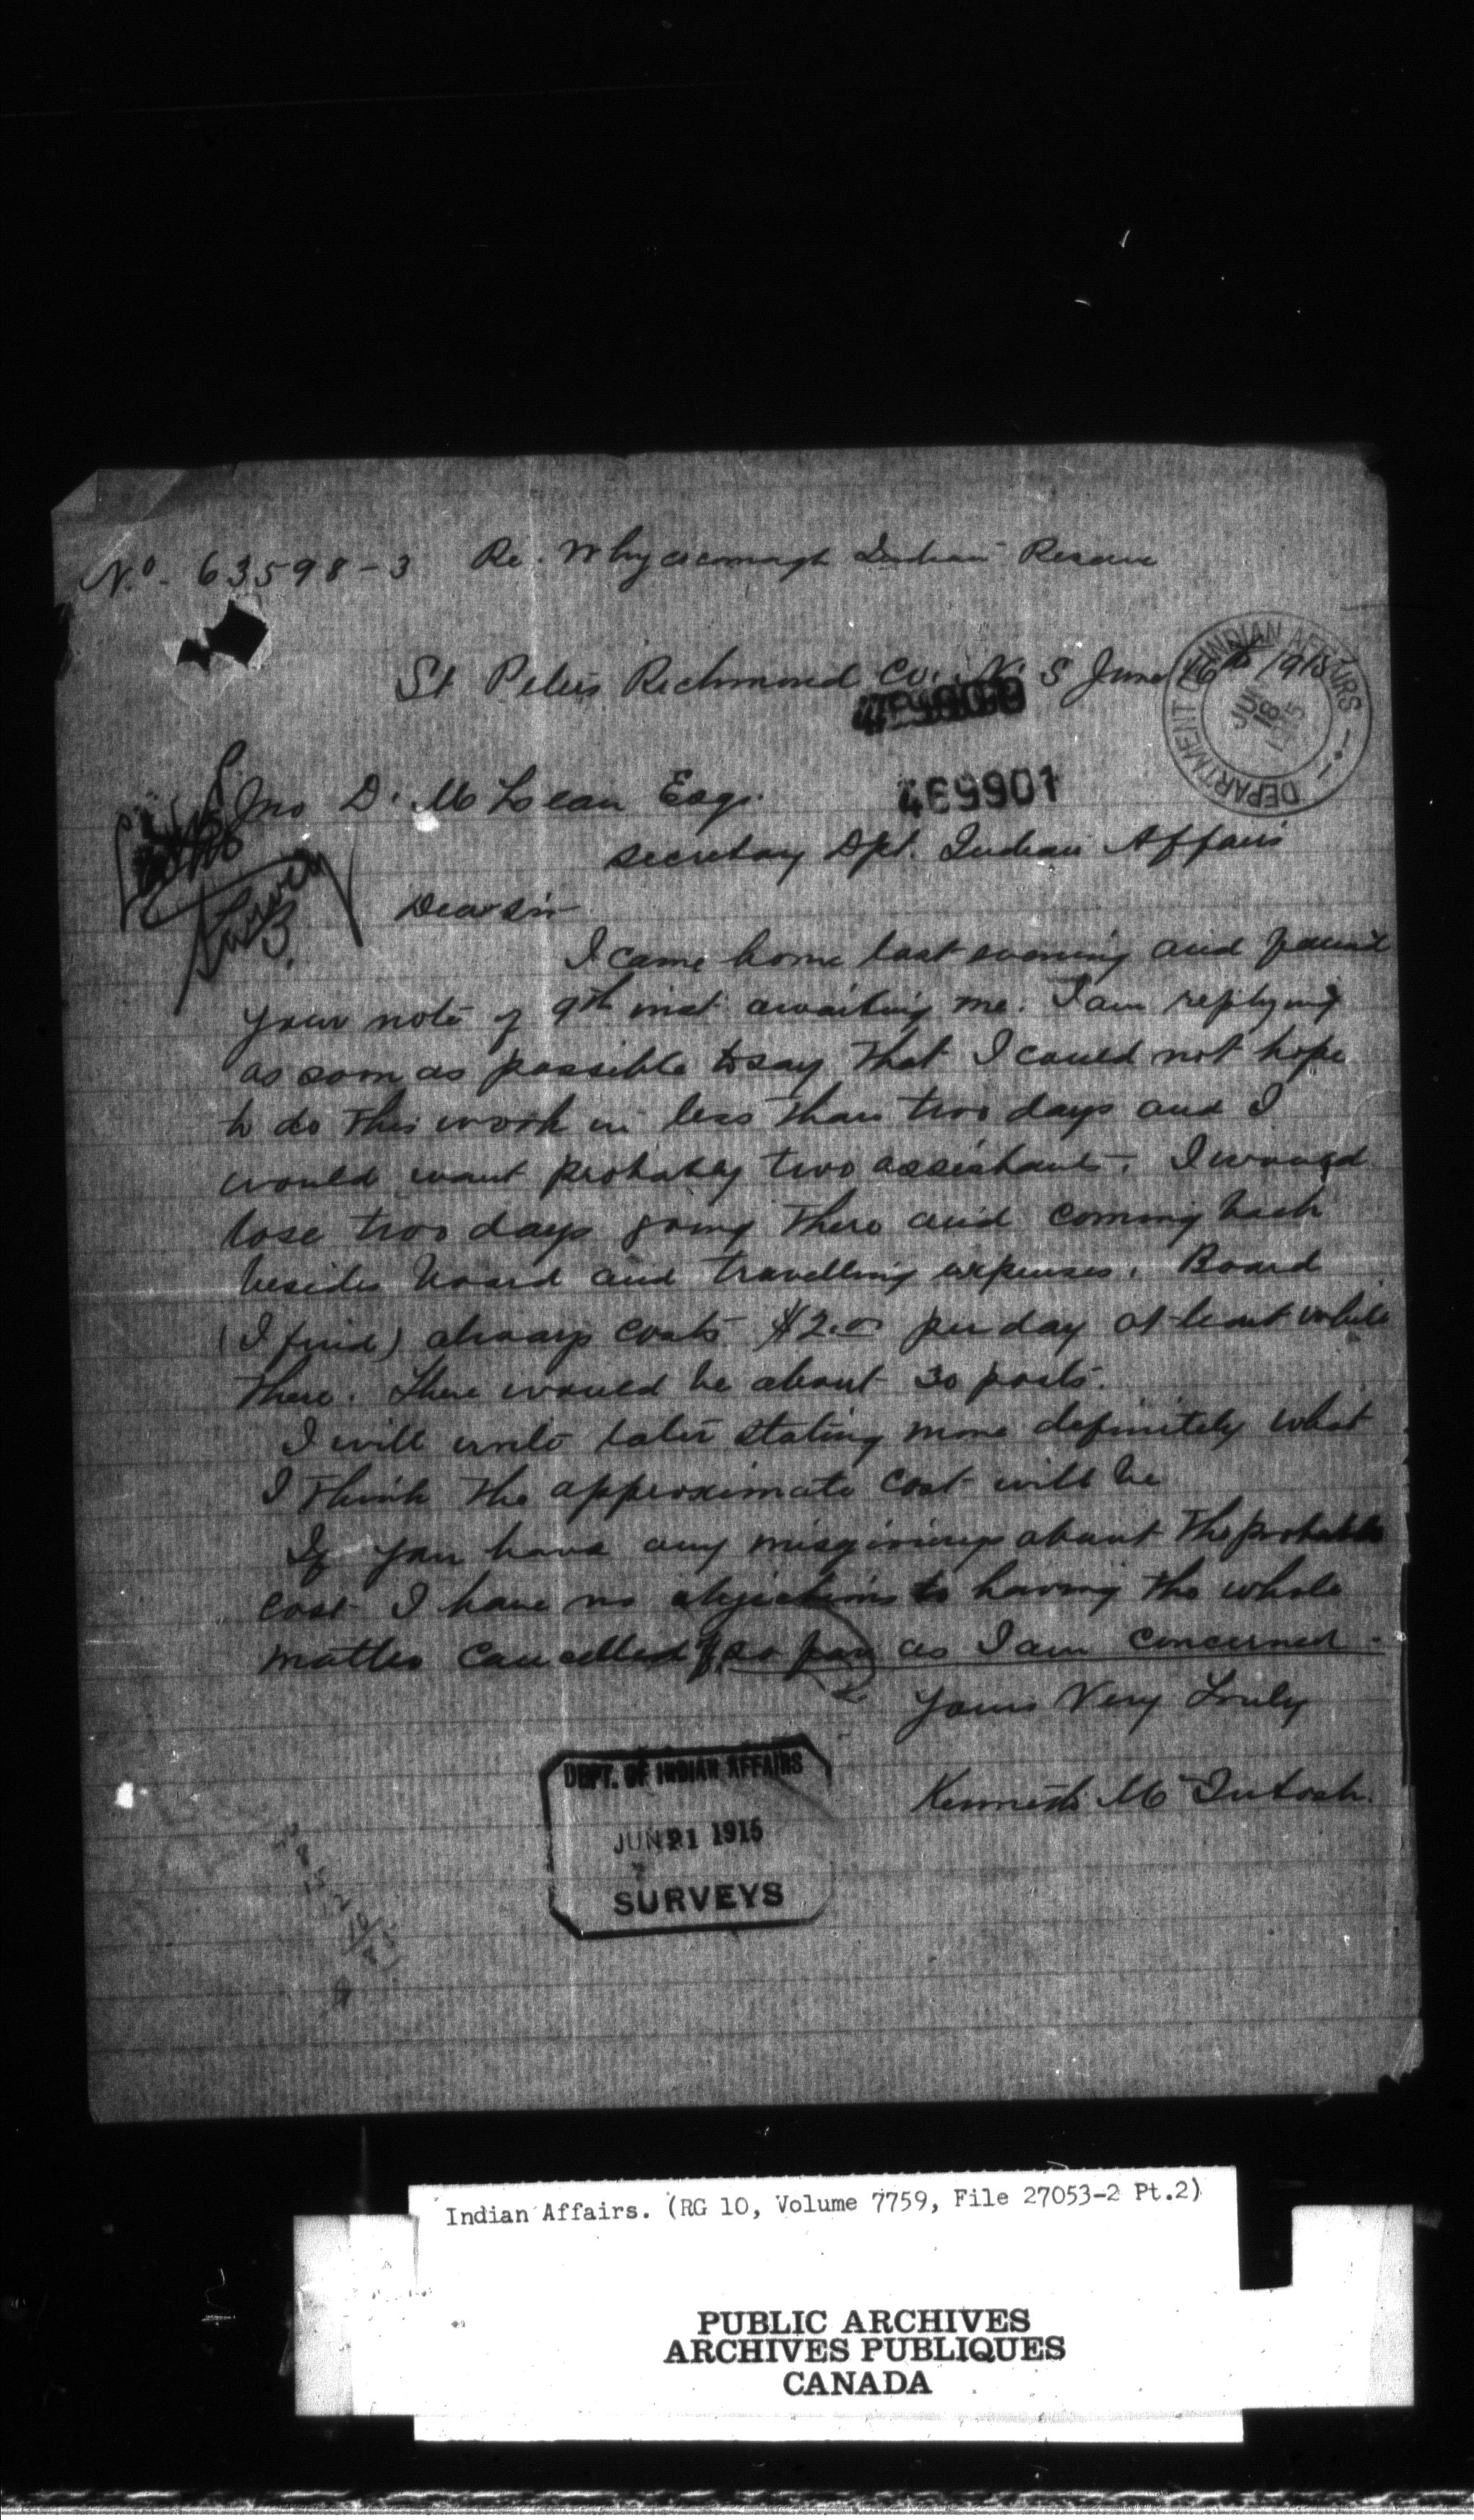 No. 63598-3 Re. Whycocomagh Indian Reserve
St Peters Richmond Co. N. S June 16th 1915
DEPARTMENT OF INDIAN AFFAIRS
JUN 18 1915
469901
Jno D. McLean Esq.
Secretary Dpt. Indian Affairs
Survey
Dear Sir
I came home last evening and found
your note of 9th inst awaiting me. I am replying
as soon as possible to say that I could not hope
to do this work in less than two days and I
would want probably two assistants. I would
lose two days going there and coming back
besides board and travelling expenses. Board
(I find) always costs $2.00 per day at least while
there. There would be about 30 posts.
I will write later stating more definitely what
I think the approximate cost will be
If you have any misgivings about the probable
cost I have no objections to having the whole
matter cancelled so far as I am concerned.
Yours Very Truly
Kenneth McIntosh.
DEPT. OF INDIAN AFFAIRS
JUN 21 1915
SURVEYS
Indian Affairs. (RG 10, Volume 7759, File 27053-2 Pt.2)
PUBLIC ARCHIVES
ARCHIVES PUBLIQUES
CANADA